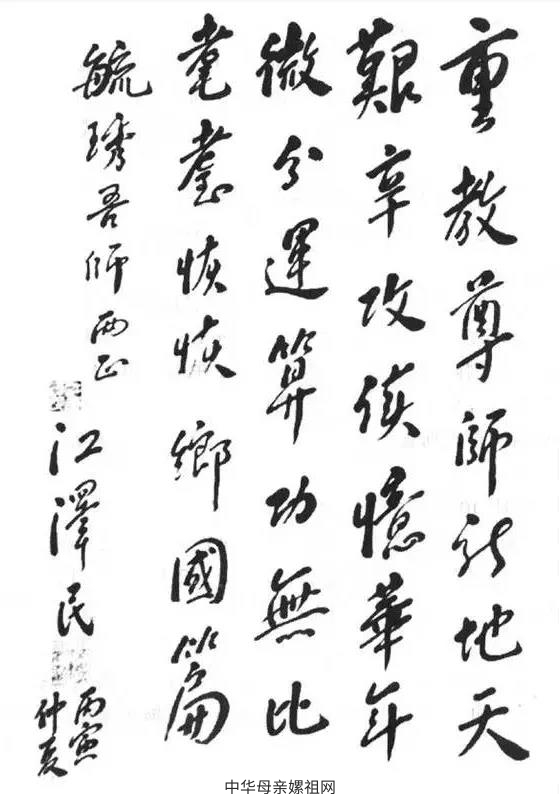 重教尊師新地天
艱辛攻读憶華年
微分運算功無比
耄耋恢恢鄉國篇
毓琇吾師正
江澤民
丙寅
仲夏
中华母亲嫘祖网